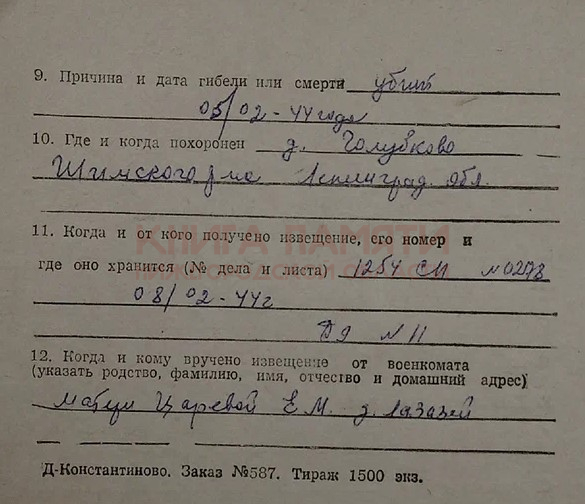 9. Причина и дата гибели или смерти убит
05/02-44 года
10. Где и когда похоронен д. Голубково
Шимского р-на Ленинград. обл.
КНИГА ПАМЯТИ
11. Когда и от кого получено извещение, его номер и
где оно хранится (№ дела и листа) 1254 СП №0278
08/02-44г
Д9 №11
12. Когда и кому вручено извещение от военкомата
(указать родство, фамилию, имя, отчество и домашний адрес)
матери Царевой Е.М. д.
Д-Константиново. Заказ №587. Тираж 1500 экз.